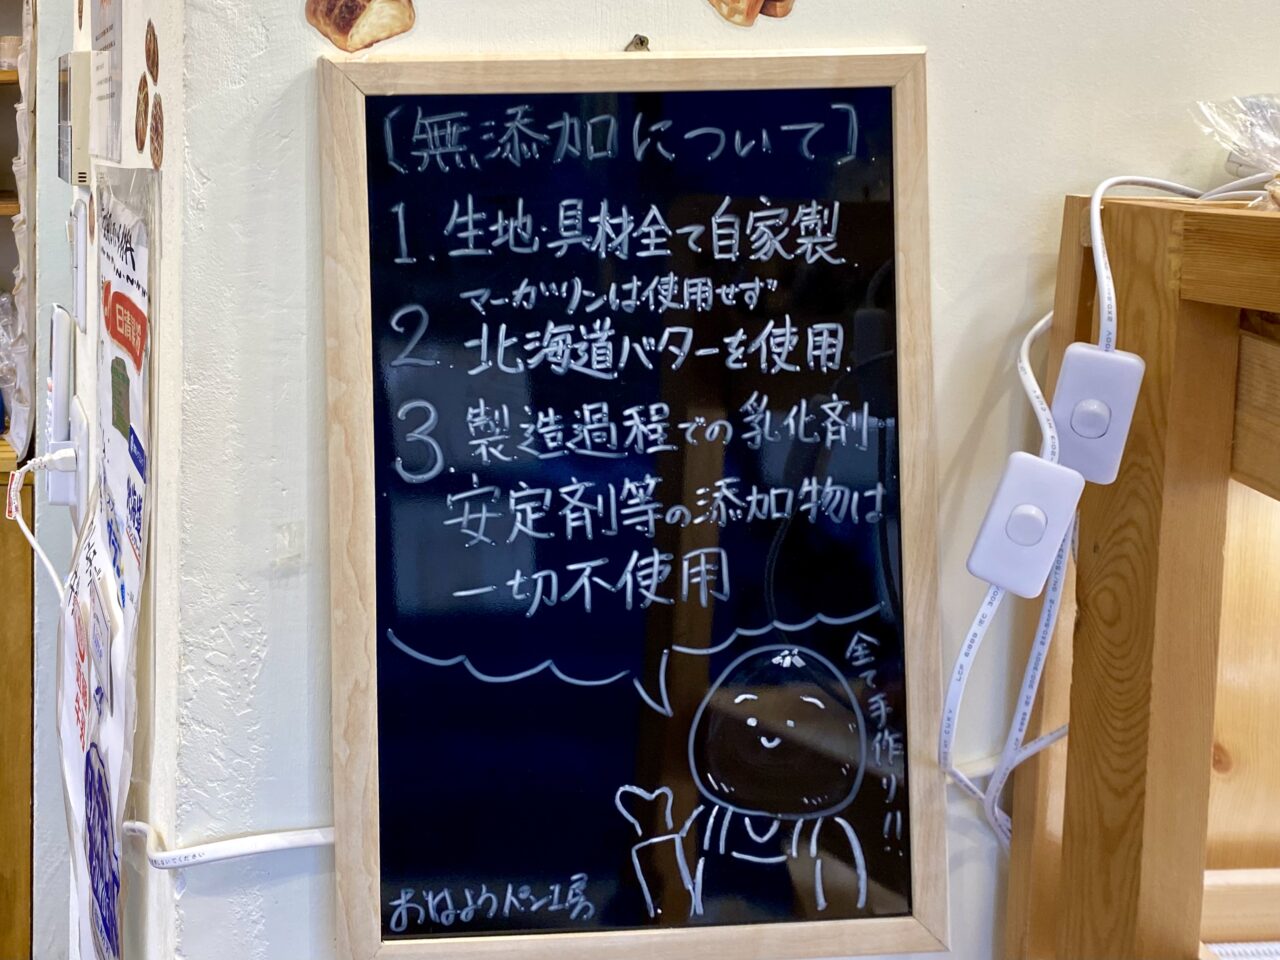 〔無添加について〕
1. 生地・具材全て自家製.
マーガリンは使用せず
2. 北海道バターを使用.
3. 製造過程での乳化剤
安定剤等の添加物は
一切不使用
全て手作り!!
おはようパン工房
日清製粉